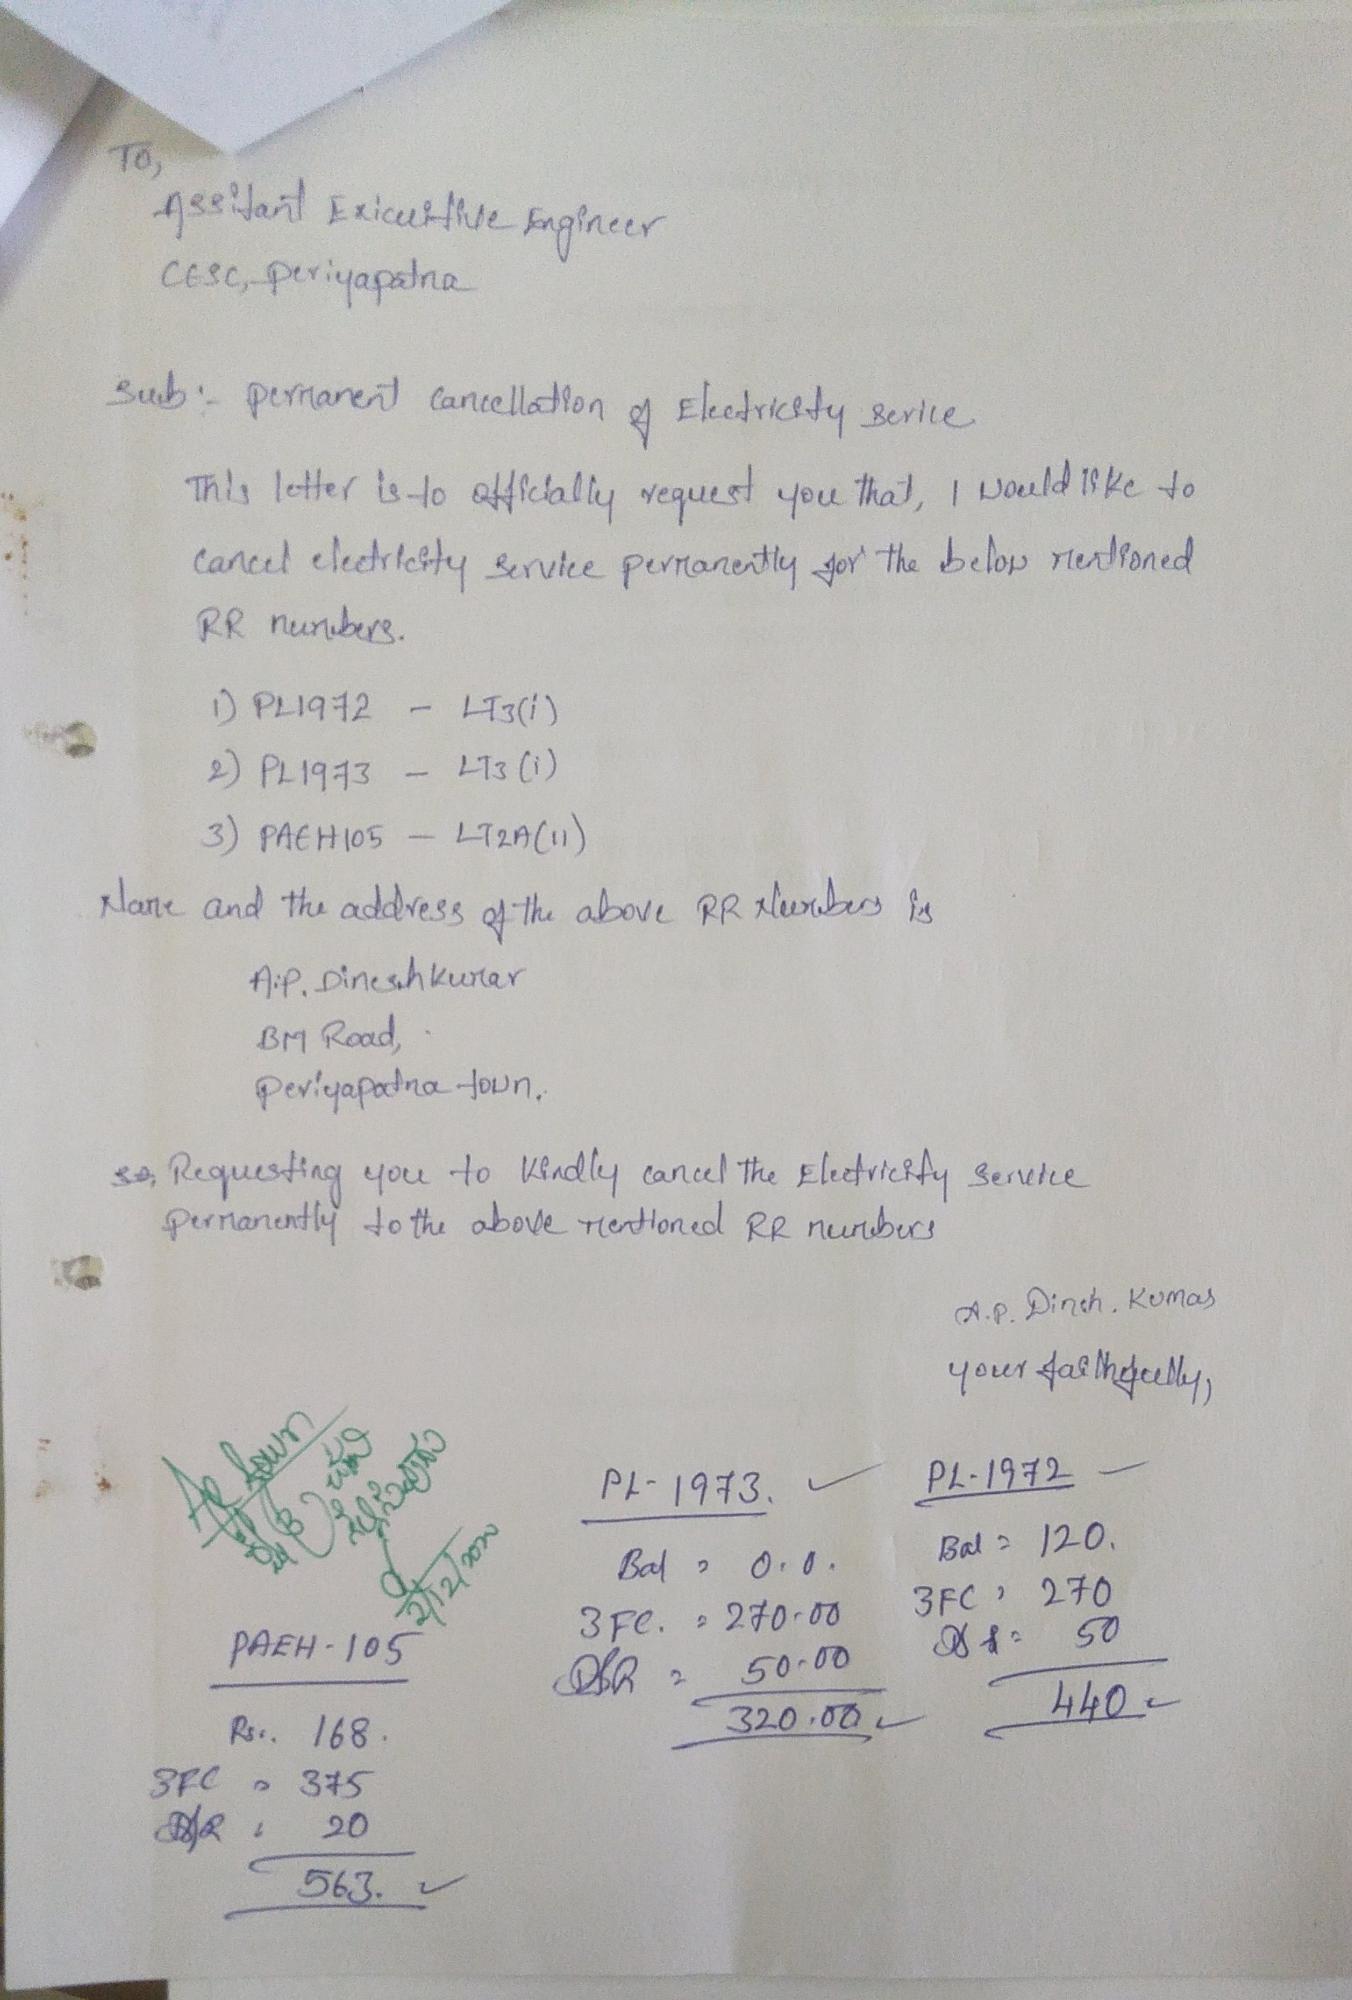 To,
Assitant Exicutive Engineer
CESC, Periyapatna
Sub:- Permanent Cancellation of Electricity Serice
This letter is to officially request you that, I would like to
cancel electricity service permanently for the below mentioned
RR numbers.
1) PL1972 - LT3(i)
2) PL1973 - LT3(i)
3) PAEH105 - LT2A(11)
Name and the address of the above RR Numbers is
A.P. Dineshkumar
BM Road,
Periyapatna town.
So, Requesting you to Kindly cancel the Electricity Service
Permanently to the above mentioned RR numbers
A.P. Dinsh. Kumar
your faithfully,
2/12/2020
PAEH-105
Rs.. 168.
3FC = 375
20
563.
PL-1973.
Bal = 0.0.
3FC. = 270.00
DSR = 50.00
320.00
PL-1972
Bal = 120.
3FC = 270
50
440